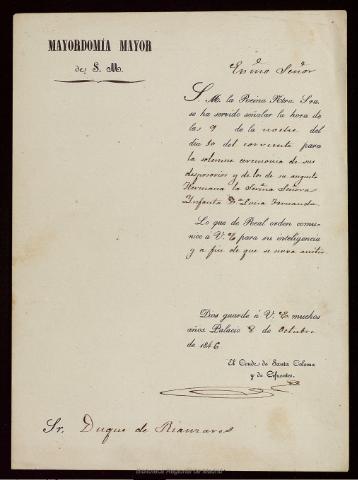 MAYORDOMÍA MAYOR
de S. M.
Exmo Señor
S. M. la Reina Ntra. Sra.
se ha servido señalar la hora de
las 9 de la noche del
dia 10 del corriente para
la solemne ceremonia de sus
desposorios y de los de su augusta
Hermana la Serma Señora
Infanta Da Luisa Fernanda.
Lo que de Real orden comu-
nico á V. E. para su inteligencia
y a fin de que se sirva asistir.
Dios guarde á V. E. muchos
años. Palacio 8 de Octubre
de 1846
El Conde de Santa Coloma
y de Cifuentes.
Sr. Duque de Rianzares
Biblioteca Regional de Madrid